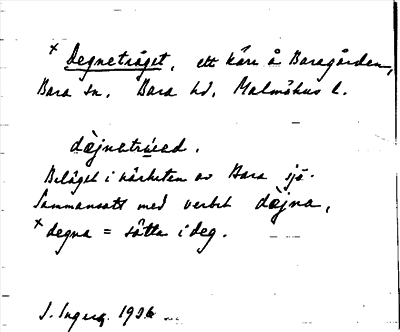 × Degneträget, ett kärr å Baragården,
Bara sn. Bara hd. Malmöhus l.
dæjnatræed.
Beläget i närheten av Bara sjö.
Sammansatt med verbet dæ̀jna,
× degna = sätta i deg.
J. Ingers. 1936